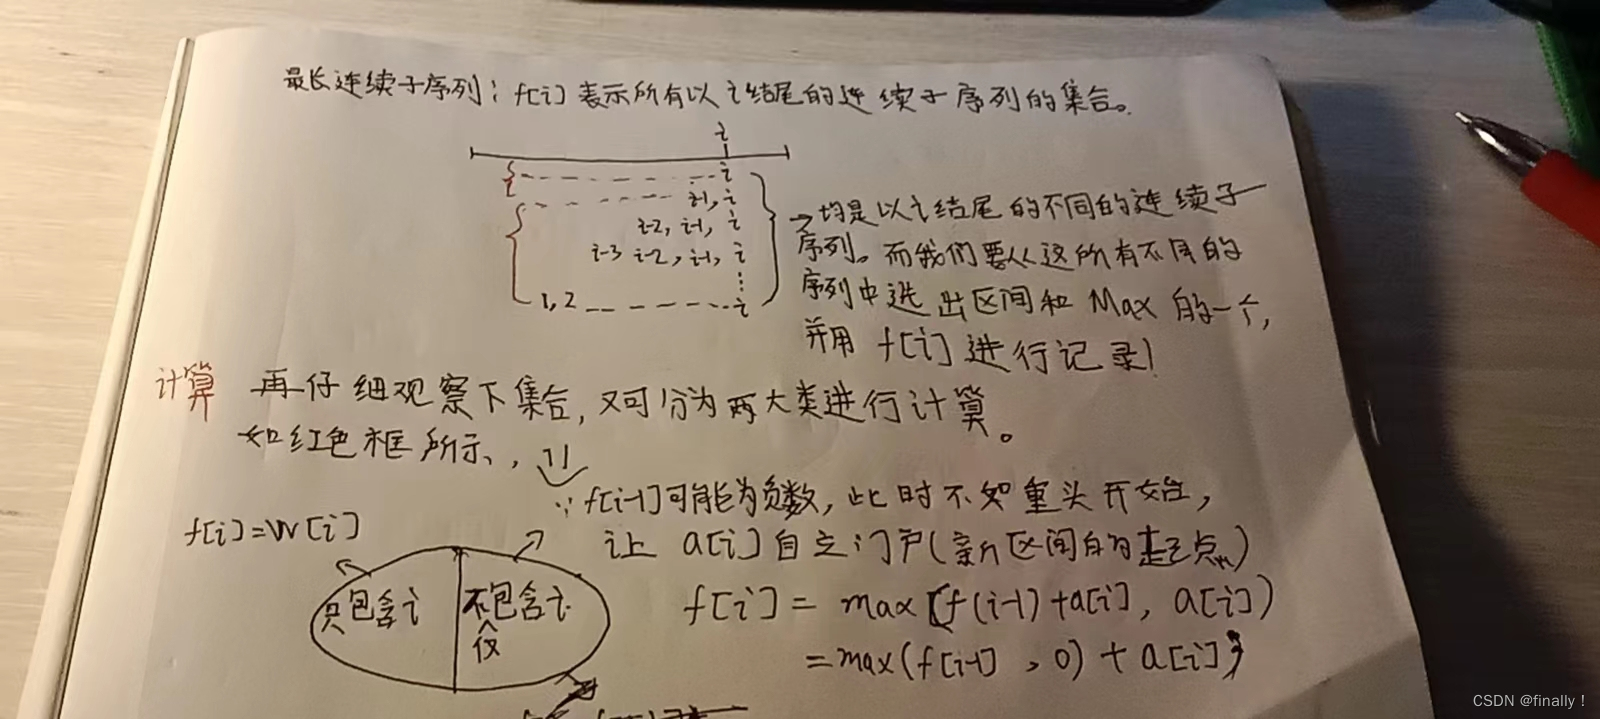 最长连续子序列：f[i]表示所有以i结尾的连续子序列的集合。
i
i
i-1, i
i-2, i-1, i
i-3 i-2, i-1, i
1, 2 i
→均是以i结尾的不同的连续子
序列。而我们要从这所有不同的
序列中选出区间和 Max 的一个，
并用 f[i] 进行记录！
计算 再仔细观察下集合，又可分为两大类进行计算。
如红色框所示，
∵ f[i-1]可能为负数，此时不如重头开始，
让 a[i] 自立门户(新区间的起点)
f[i]=W[i]
只包含i
不仅包含i
f[i] = max(f(i-1)+a[i], a[i])
=max(f[i-1], 0) + a[i];
CSDN @finally！